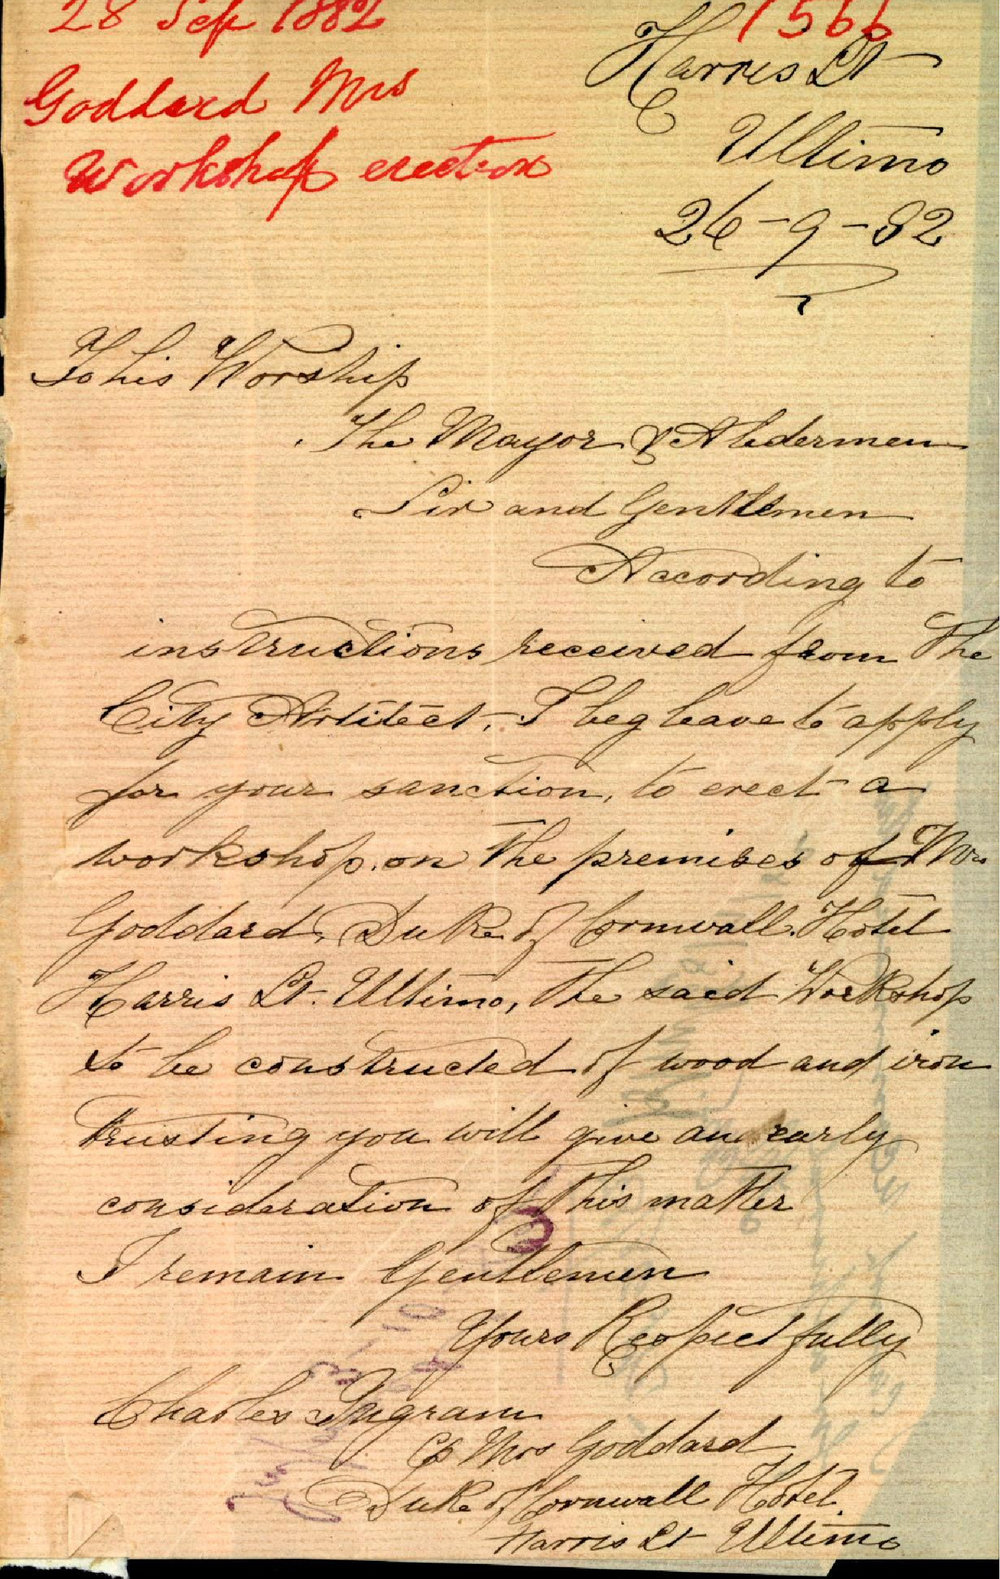 28 Sep 1882
Goddard Mrs
Workshop erection
1566
Harris St
Ultimo
26-9-82
To his Worship
The Mayor & Aldermen
Sir and Gentlemen
According to
instructions received from the
City Architect, I beg leave to apply
for your sanction, to erect a
workshop, on the premises of Mrs
Goddard, Duke of Cornwall Hotel
Harris St. Ultimo, the said Workshop
to be constructed of wood and iron
trusting you will give an early
consideration of this matter
I remain Gentlemen
Yours Respectfully
Charles Ingram
Mrs Goddard
Duke of Cornwall Hotel
Harris St Ultimo